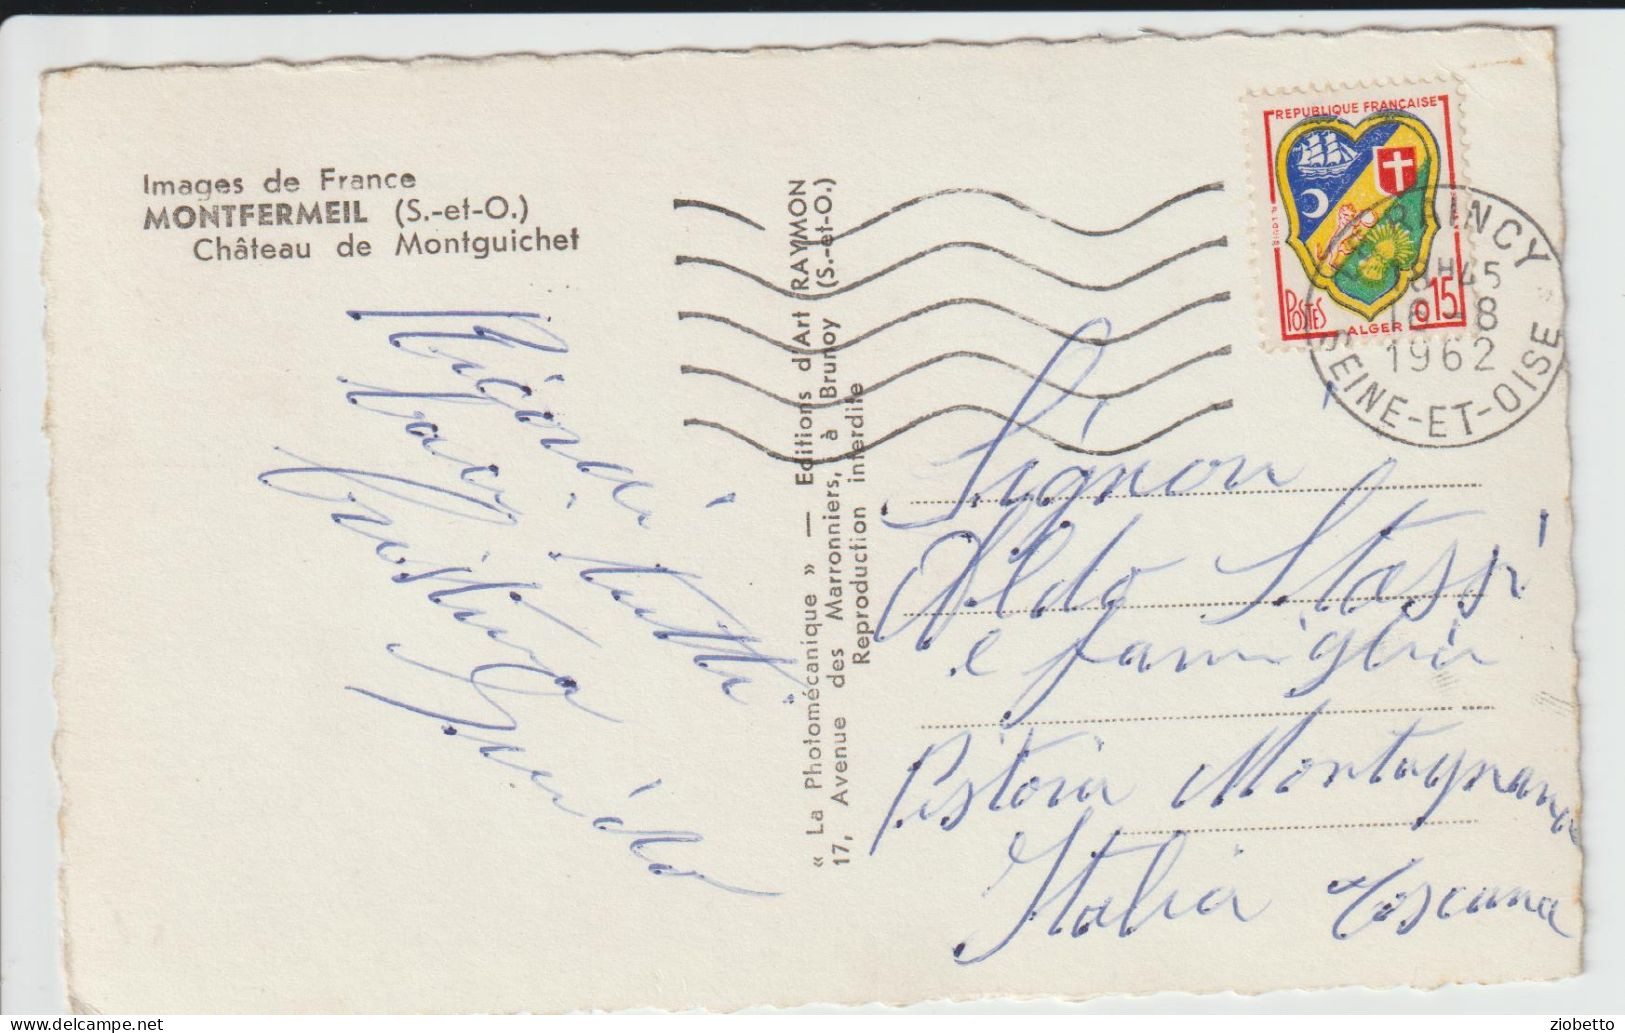 Images de France
MONTFERMEIL (S.-et-O.)
Château de Montguichet
« La Photomécanique » — Editions d'Art RAYMON
17, Avenue des Marronniers, à Brunoy (S.-et-O.)
Reproduction interdite
REPUBLIQUE FRANÇAISE
POSTES
ALGER
0,15
RAINCY
18H45
8
1962
SEINE-ET-OISE
Ricordi
a tutti
Guido
Signor
Aldo Stassi
e famiglia
Pistoia Montagnana
Italia Toscana
ziobetto